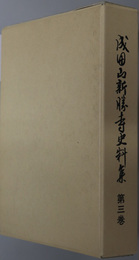 成田山新勝寺史料集 第三巻